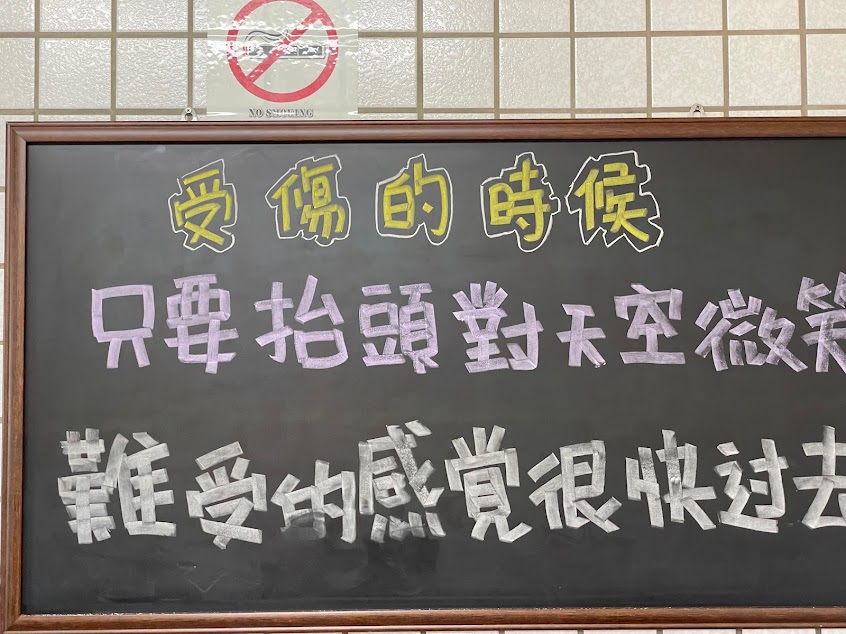 NO SMOKING
受傷的時候
只要抬頭對天空微笑
難受的感覺很快过去